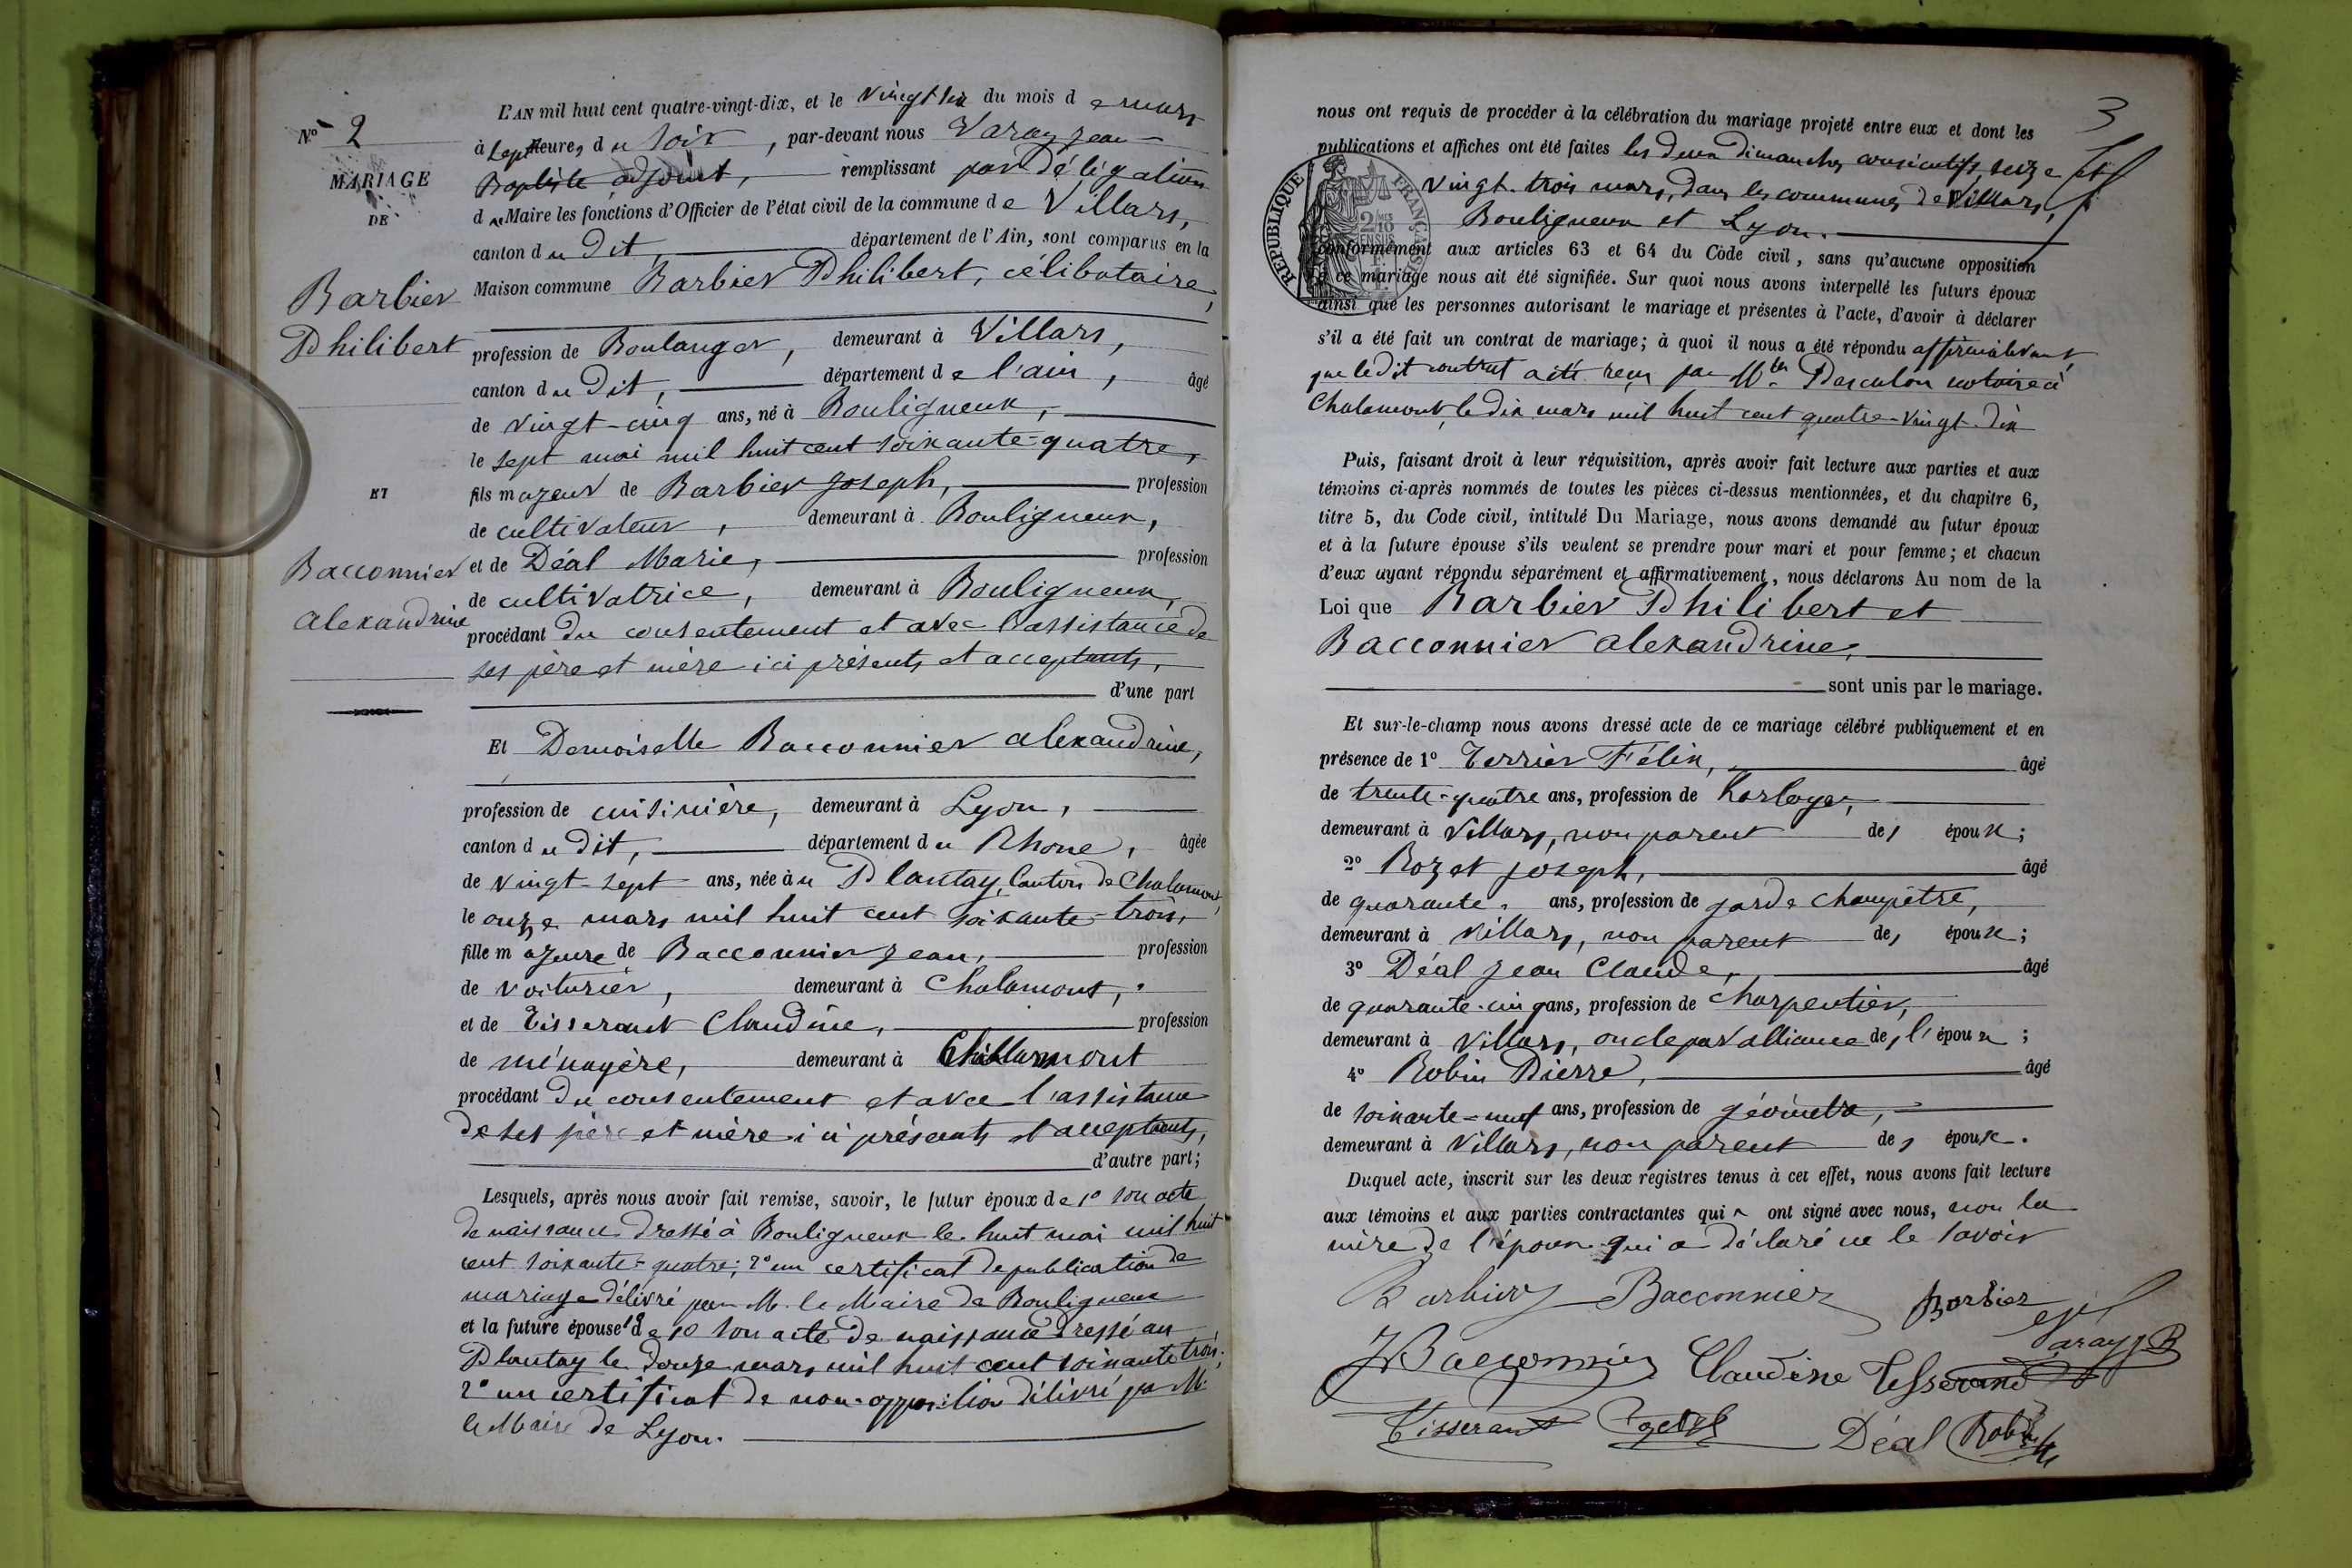 L'AN mil huit cent quatre-vingt-dix, et le vingt six du mois de mars
No 2
à sept heures du soir, par-devant nous Varay Jean
MARIAGE
Baptiste adjoint, remplissant par délégation
DE
du Maire les fonctions d'Officier de l'état civil de la commune de Villars,
canton du dit, département de l'Ain, sont comparus en la
Barbier
Maison commune Barbier Philibert, célibataire,
Philibert
profession de Boulanger, demeurant à Villars,
canton du dit, département de l'ain, âgé
de vingt-cinq ans, né à Bouligneux,
le sept mai mil huit cent soixante-quatre,
ET
fils majeur de Barbier Joseph, profession
de cultivateur, demeurant à Bouligneux,
Bacconnier
et de Déal Marie, profession
de cultivatrice, demeurant à Bouligneux,
alexandrine
procédant du consentement et avec l'assistance de
ses père et mère ici présents et acceptants,
d'une part
Et Demoiselle Bacconnier alexandrine,
profession de cuisinière, demeurant à Lyon,
canton du dit, département du Rhone, âgée
de vingt-sept ans, née au Plantay, Canton de Chalamont,
le onze mars mil huit cent soixante-trois,
fille majeure de Bacconnier Jean, profession
de voiturier, demeurant à Chalamont,
et de Tisserant Claudine, profession
de ménagère, demeurant à Chalamont
procédant du consentement et avec l'assistance
de ses père et mère ici présents et acceptants,
d'autre part;
Lesquels, après nous avoir fait remise, savoir, le futur époux de 1o son acte
de naissance dressé à Bouligneux le huit mai mil huit
cent soixante-quatre; 2o un certificat de publication de
mariage délivré par M. le Maire de Bouligneux
et la future épouse de 1o son acte de naissance dressé au
Plantay le douze mars mil huit cent soixante trois;
2o un certificat de non-opposition délivré par M
le Maire de Lyon.
3
nous ont requis de procéder à la célébration du mariage projeté entre eux et dont les
publications et affiches ont été faites les deux Dimanches consécutifs, seize et
vingt-trois mars, dans les communes de Villars,
Bouligneux et Lyon.
RÉPUBLIQUE FRANÇAISE
2/10 EN SUS
conformément aux articles 63 et 64 du Code civil, sans qu'aucune opposition
à ce mariage nous ait été signifiée. Sur quoi nous avons interpellé les futurs époux
ainsi que les personnes autorisant le mariage et présentes à l'acte, d'avoir à déclarer
s'il a été fait un contrat de mariage; à quoi il nous a été répondu affirmativement
que le dit contrat a été reçu par Mtre notaire à
Chalamont, le dix mars mil huit cent quatre-vingt-dix
Puis, faisant droit à leur réquisition, après avoir fait lecture aux parties et aux
témoins ci-après nommés de toutes les pièces ci-dessus mentionnées, et du chapitre 6,
titre 5, du Code civil, intitulé Du Mariage, nous avons demandé au futur époux
et à la future épouse s'ils veulent se prendre pour mari et pour femme; et chacun
d'eux ayant répondu séparément et affirmativement, nous déclarons Au nom de la
Loi que Barbier Philibert et
Bacconnier alexandrine,
sont unis par le mariage.
Et sur-le-champ nous avons dressé acte de ce mariage célébré publiquement et en
présence de 1o Terrier Félix, âgé
de trente-quatre ans, profession de horloger,
demeurant à Villars, non parent des époux;
2o Rozet Joseph, âgé
de quarante ans, profession de garde champêtre,
demeurant à Villars, non parent des époux;
3o Déal Jean Claude, âgé
de quarante-cinq ans, profession de charpentier,
demeurant à Villars, oncle par alliance de l'époux;
4o Robin Pierre, âgé
de soixante-neuf ans, profession de géomètre,
demeurant à Villars, non parent des époux.
Duquel acte, inscrit sur les deux registres tenus à cet effet, nous avons fait lecture
aux témoins et aux parties contractantes qui ont signé avec nous, non la
mère de l'époux qui a déclaré ne le savoir
Barbier Bacconnier Barbier
Varay JB
JBacconnier Claudine Tesserand
Tisserant Déal Robin